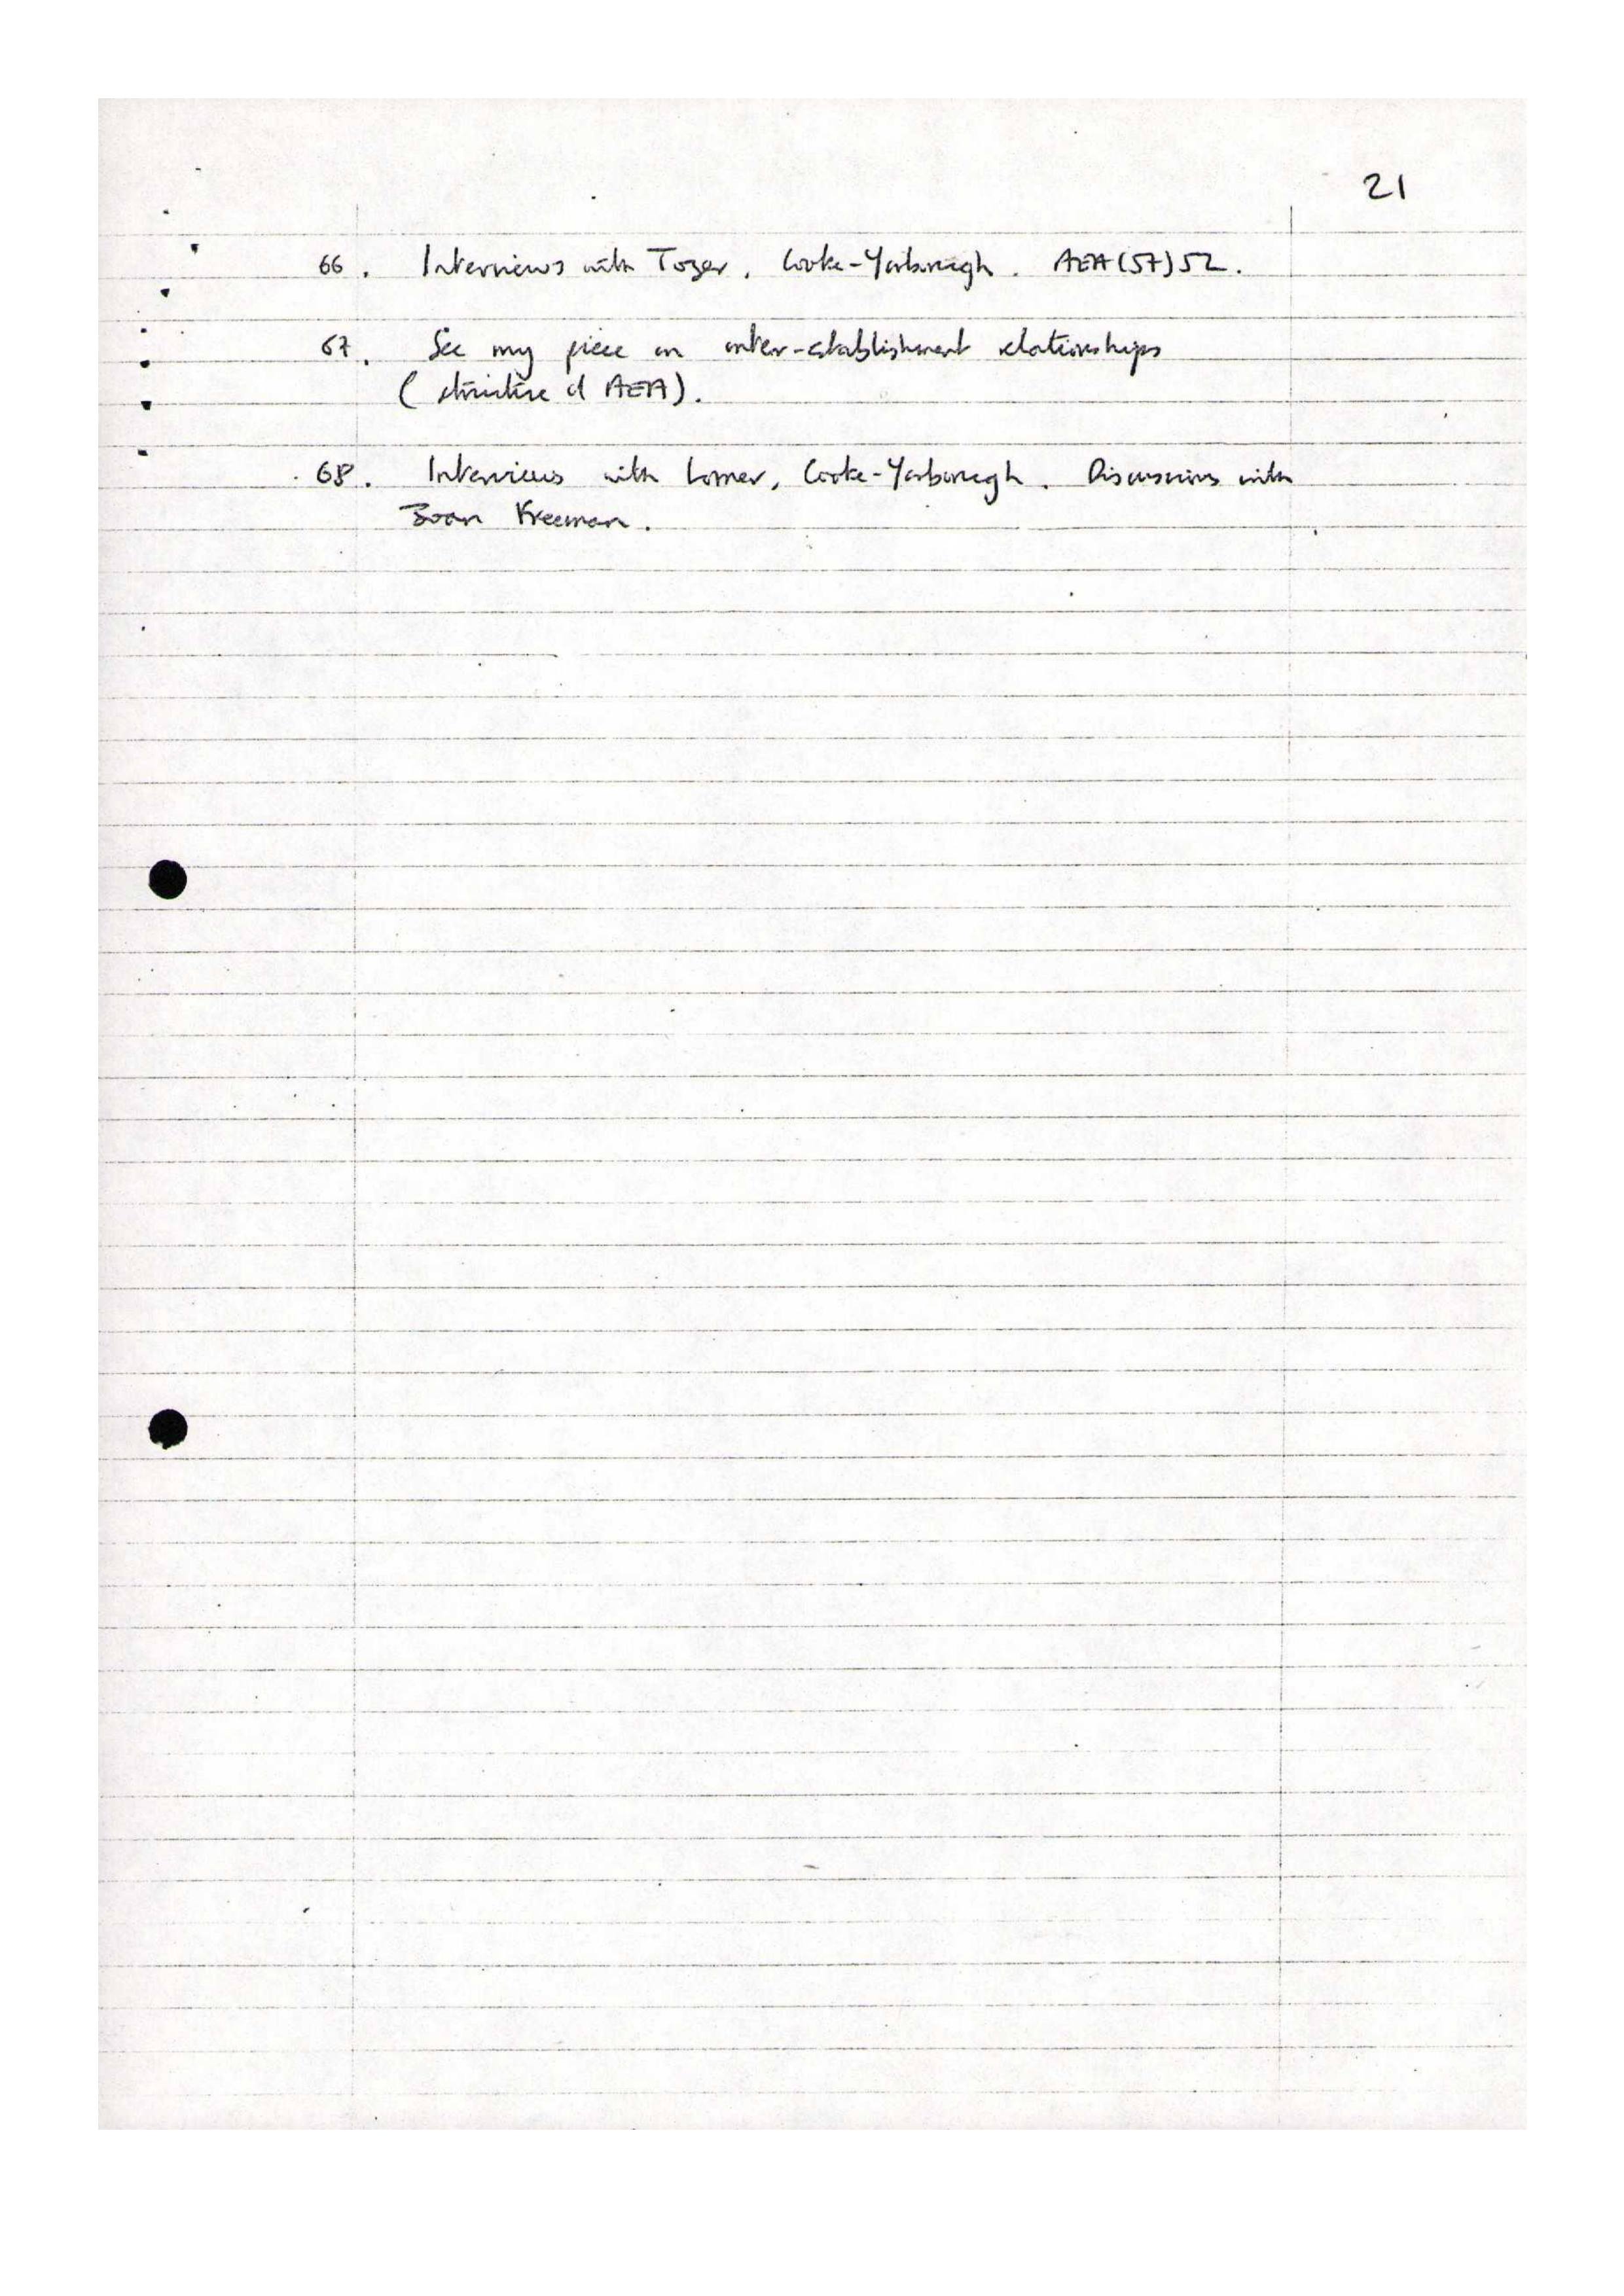 21
66. Interviews with Tozer, Cooke-Yarborough. AEA(57)52.
67. See my piece on inter-establishment relationships
(structure of AEA).
68. Interviews with Lomer, Cooke-Yarborough. Discussions with
Joan Freeman.